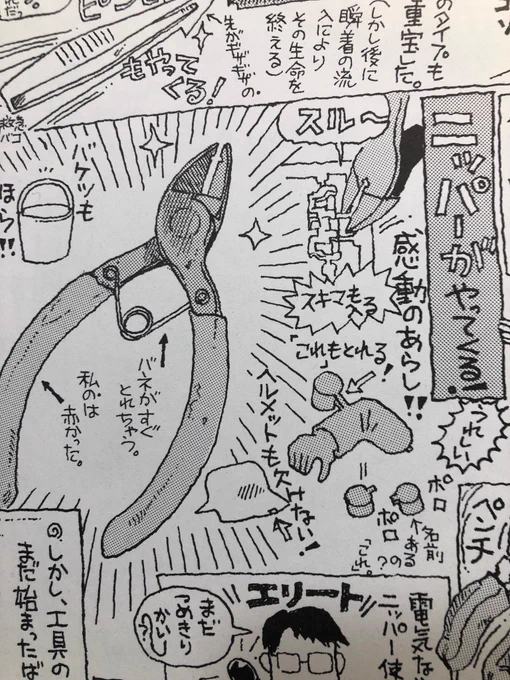 のタイプも
重宝した。
(しかし後に
瞬着の流
入により
その生命を
終える)
先がギザギザの
もやって
くる!
ニッパーがやってくる!
うれしい
スル〜
感動のあらし!!
スキマも
入る
「これ」もとれる!
ヘルメットも欠けない!
バケツも
ほら!!
バネがすぐ
とれちゃう。
私のは
赤かった。
ポロ
ポロ
↑名前
あるの?
「これ」。
ペンチ
エリート
まだ
つめきり
かい?
電気な
ニッパー使
◎しかし、工具の
まだ始まったば